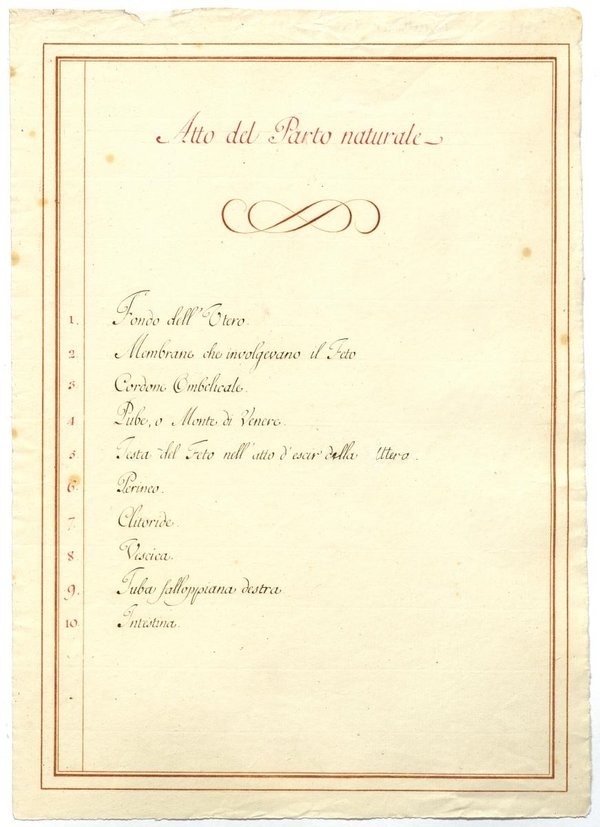 Atto del Parto naturale
1. Fondo dell'Utero.
2 Membrane che involgevano il Feto
3 Cordone Ombelicale.
4 Pube, o Monte di Venere.
5 Testa del Feto nell'atto d'escir della Utero.
6. Perineo.
7. Clitoride.
8. Vescica.
9. Tuba falloppiana destra
10. Intestina.